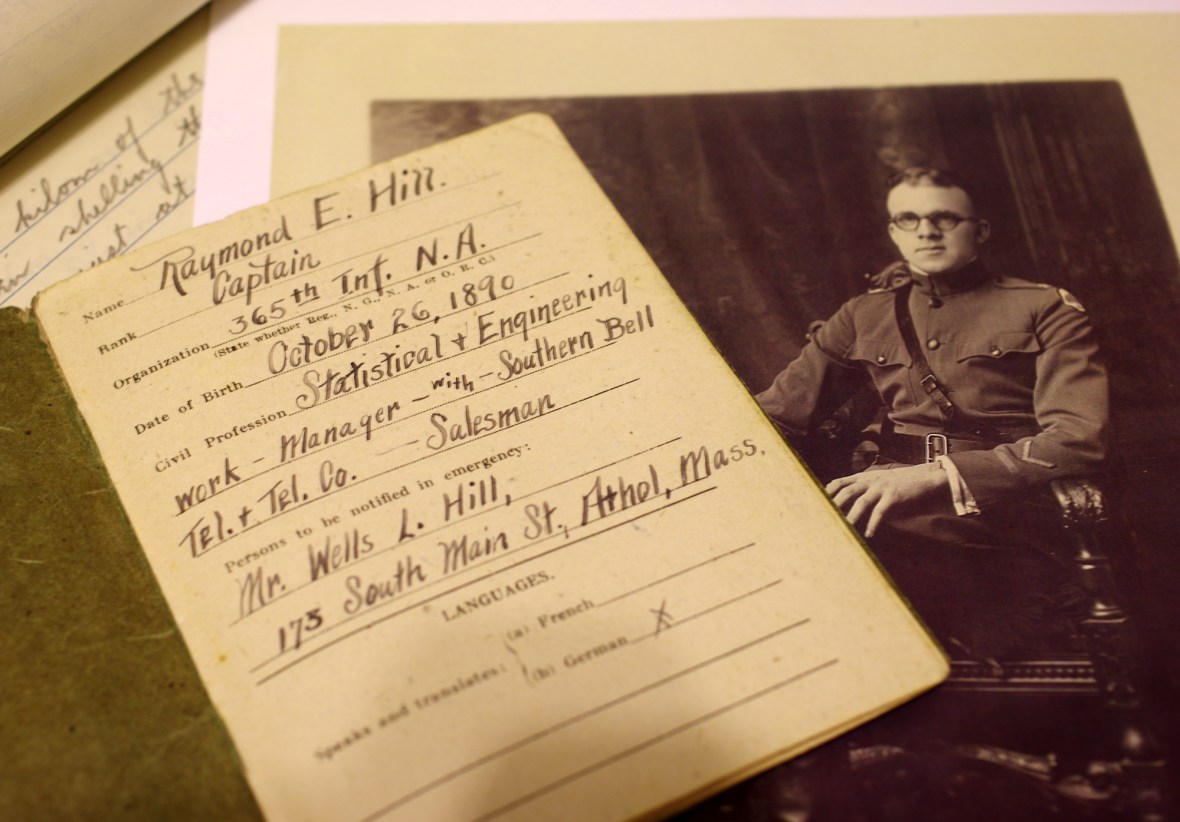 kilom. of the
shelling th
just at
Name Raymond E. Hill.
Rank Captain
Organization 365th Inf. N.A.
(State whether Reg., N. G., N. A. or O. R. C.)
Date of Birth October 26, 1890
Civil Profession Statistical + Engineering
work - Manager - with - Southern Bell
Tel. + Tel. Co. - Salesman
Persons to be notified in emergency:
Mr. Wells L. Hill,
173 South Main St., Athol, Mass.
LANGUAGES.
Speaks and translates:
(a) French
(b) German X